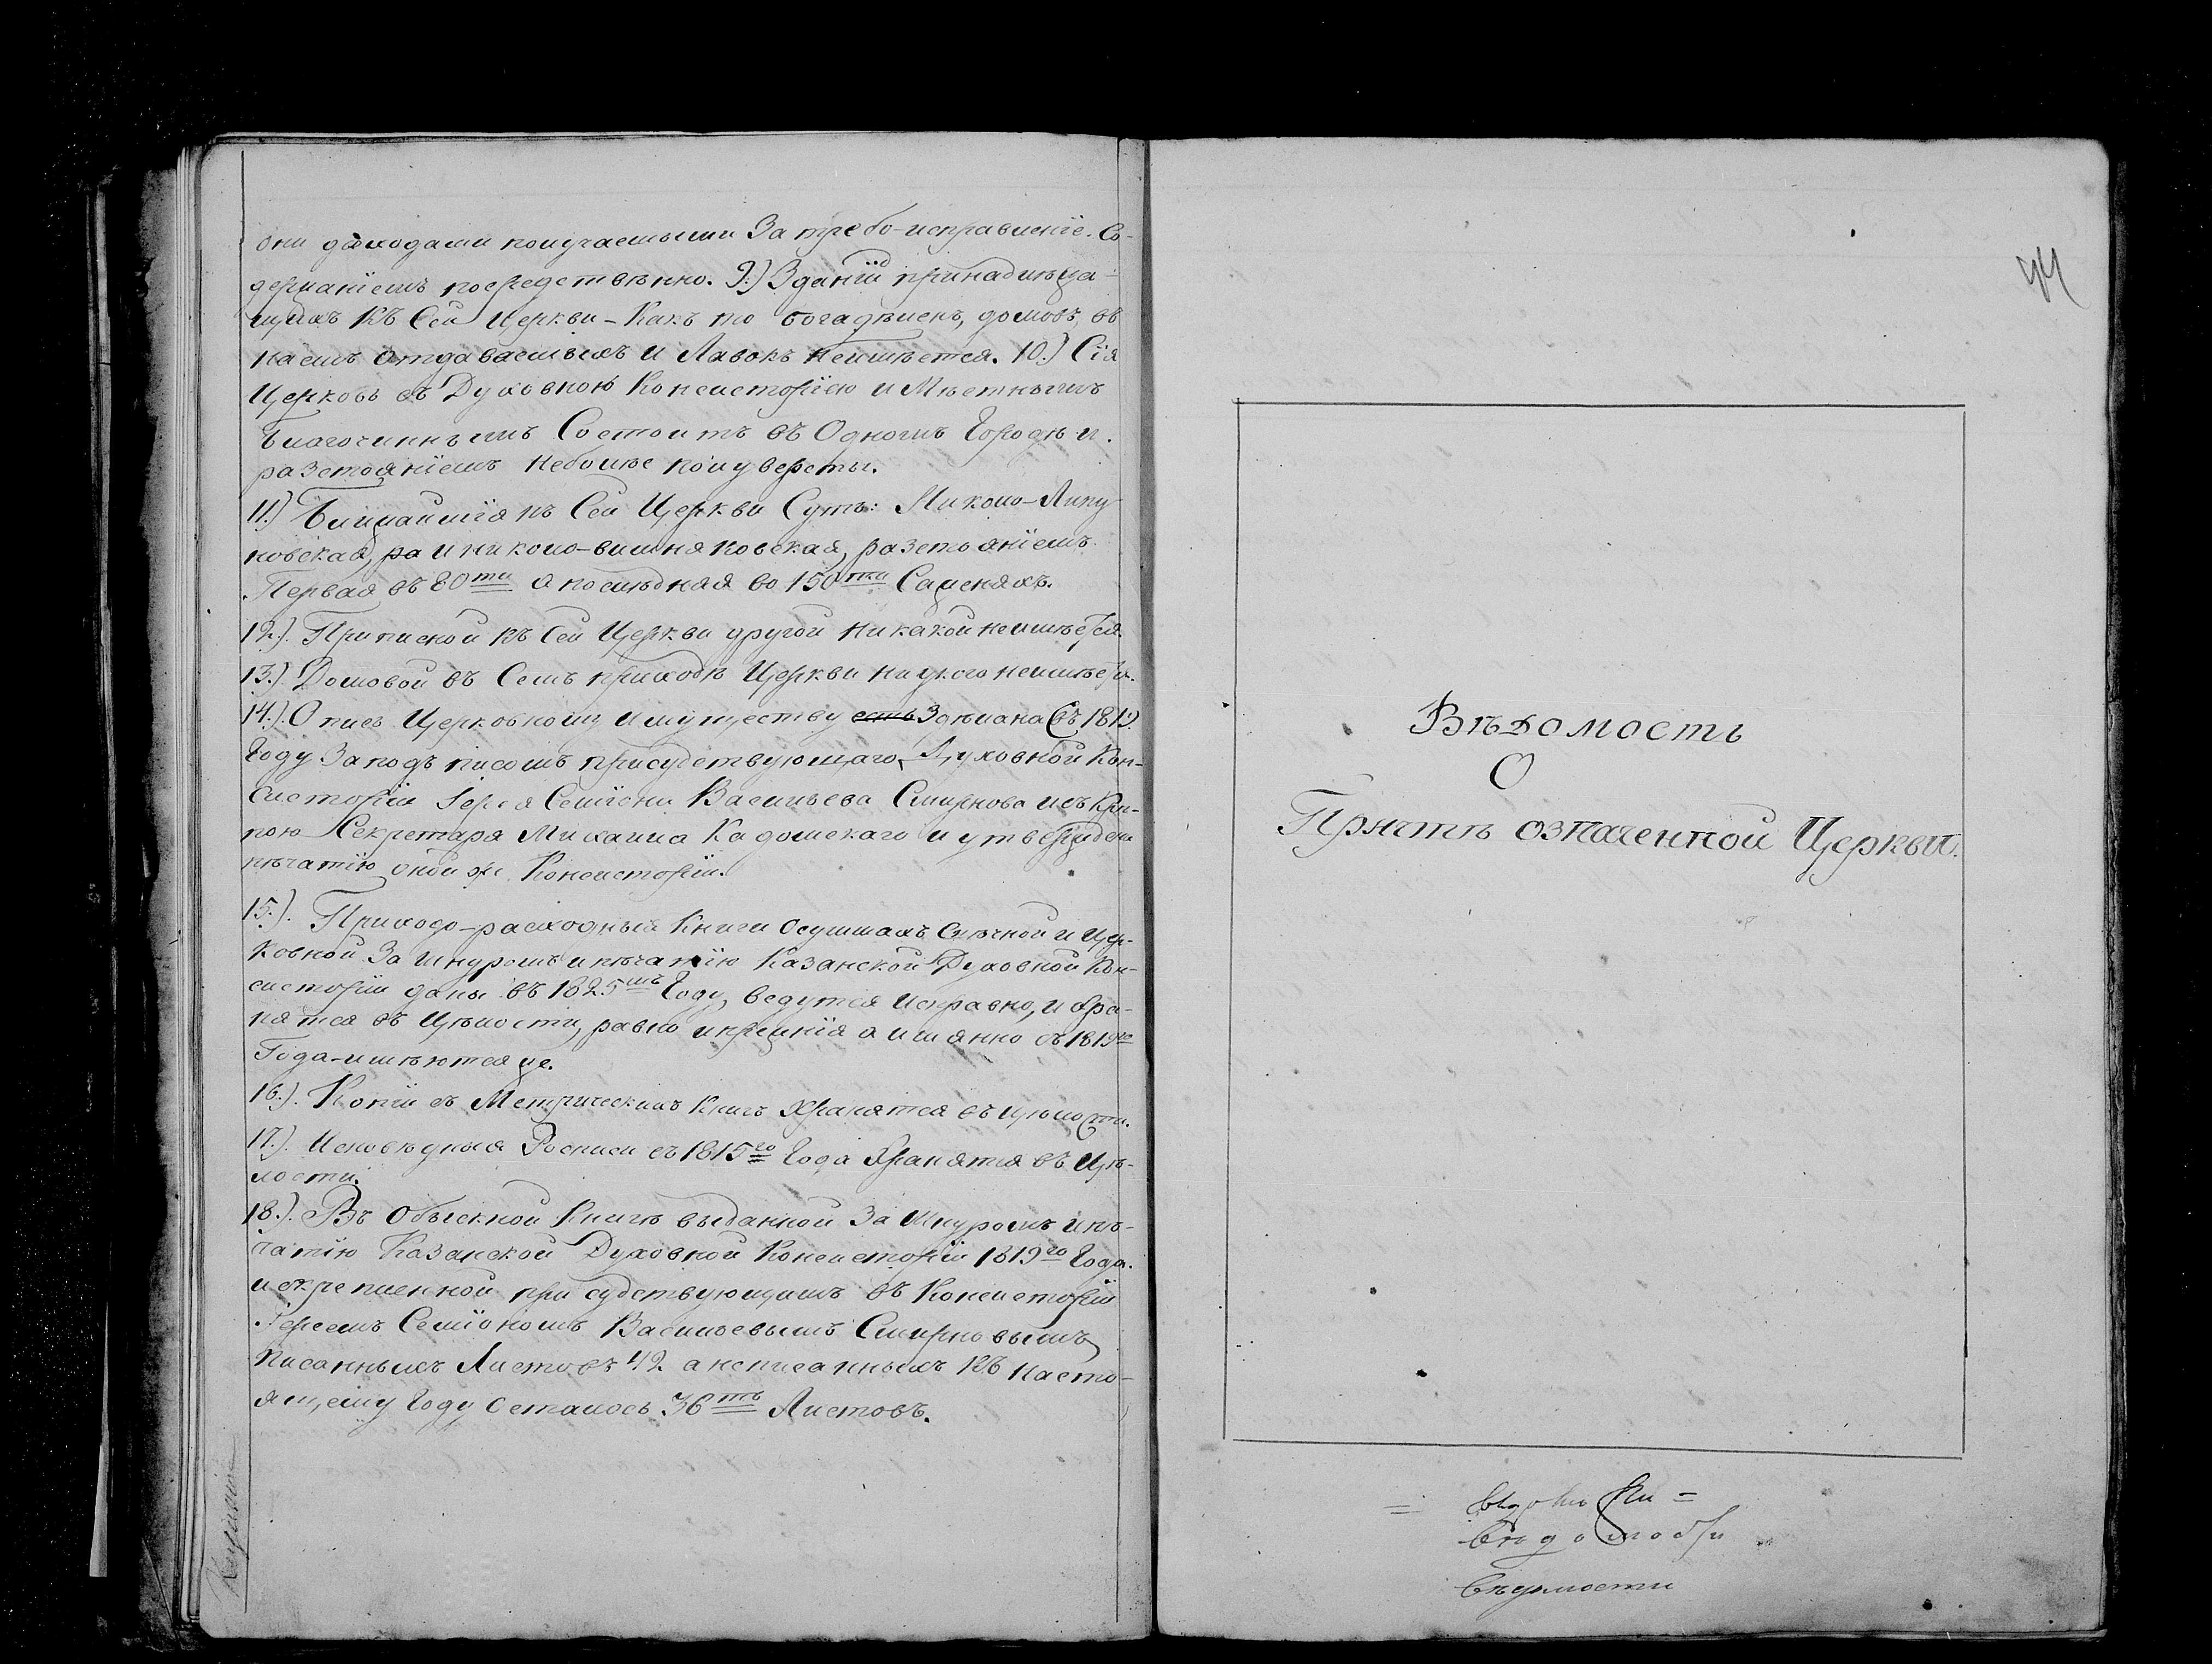 они даходами получаемыми За требо-исправленiе. Со-
держанiемъ посредственно. 9.) Зданiй принадлежа-
щихъ Къ Сей Церкви – Какъ то богадѣленъ, домовъ, въ
наемъ отдаваемыхъ и Лавокъ неимѣется. 10.) Сiя
Церковь съ Духовною Консисторiею и Мѣстнымъ
благочиннымъ Состоитъ въ Одномъ Городѣ и
разстоянiемъ неболѣе полуверсты.
11.) Ближайшiя къ Сей Церкви Суть: Николо-Ляпу-
новская, ра и николо-вишняковская, разстоянiемъ
Первая въ 80ти а послѣдняя во 150ти Саженяхъ.
12.) Приписной къ Сей Церкви другой никакой неимѣется.
13.) Домовой въ Семъ приходѣ Церкви ни укого неимѣется.
14.) Опись Церковному имуществу есть Здѣлана Съ 1819
Году За подъ писомъ присудствующаго, Духовной Кон-
Систорiи Iерея Семiона Васильева Смирнова исъ Крѣ-
пою Секретаря Михаила Кадомскаго и утвержден
пѣчатiю оной же Консисторiи.
15.) Приходо-расходныя Книги Осуммахъ Свѣчной и Цер-
ковной За шнуромъ и пѣчатiю Казанской Духовной Кон-
систорiи даны въ 1825мъ Году, ведутся исправно, и хра-
нятся въ Цѣлости, равно и прежнiя а имянно съ 1819го
Года – имѣются же.
16.) Копiи съ Метрическихъ Книгъ Хранятся въ цѣлости.
17.) Исповѣдныя Росписи съ 1815го Года Хранятся въ Цѣ-
лости.
18.) Въ Обыскной Книгѣ выданной За Шнуромъ и пѣ-
чатiю Казанской Духовной Консисторiи 1819го Года.
искрепленной при судствующимъ въ Консисторiи
Iереемъ Семiономъ Васильевымъ Смирновымъ
Писанныхъ Листовъ 42. а неписанныхъ Къ Насто-
ящему Году Осталось 36ть Листовъ.
44
Вѣдомость
О
Причтѣ означенной Церкви.
Вѣдомости